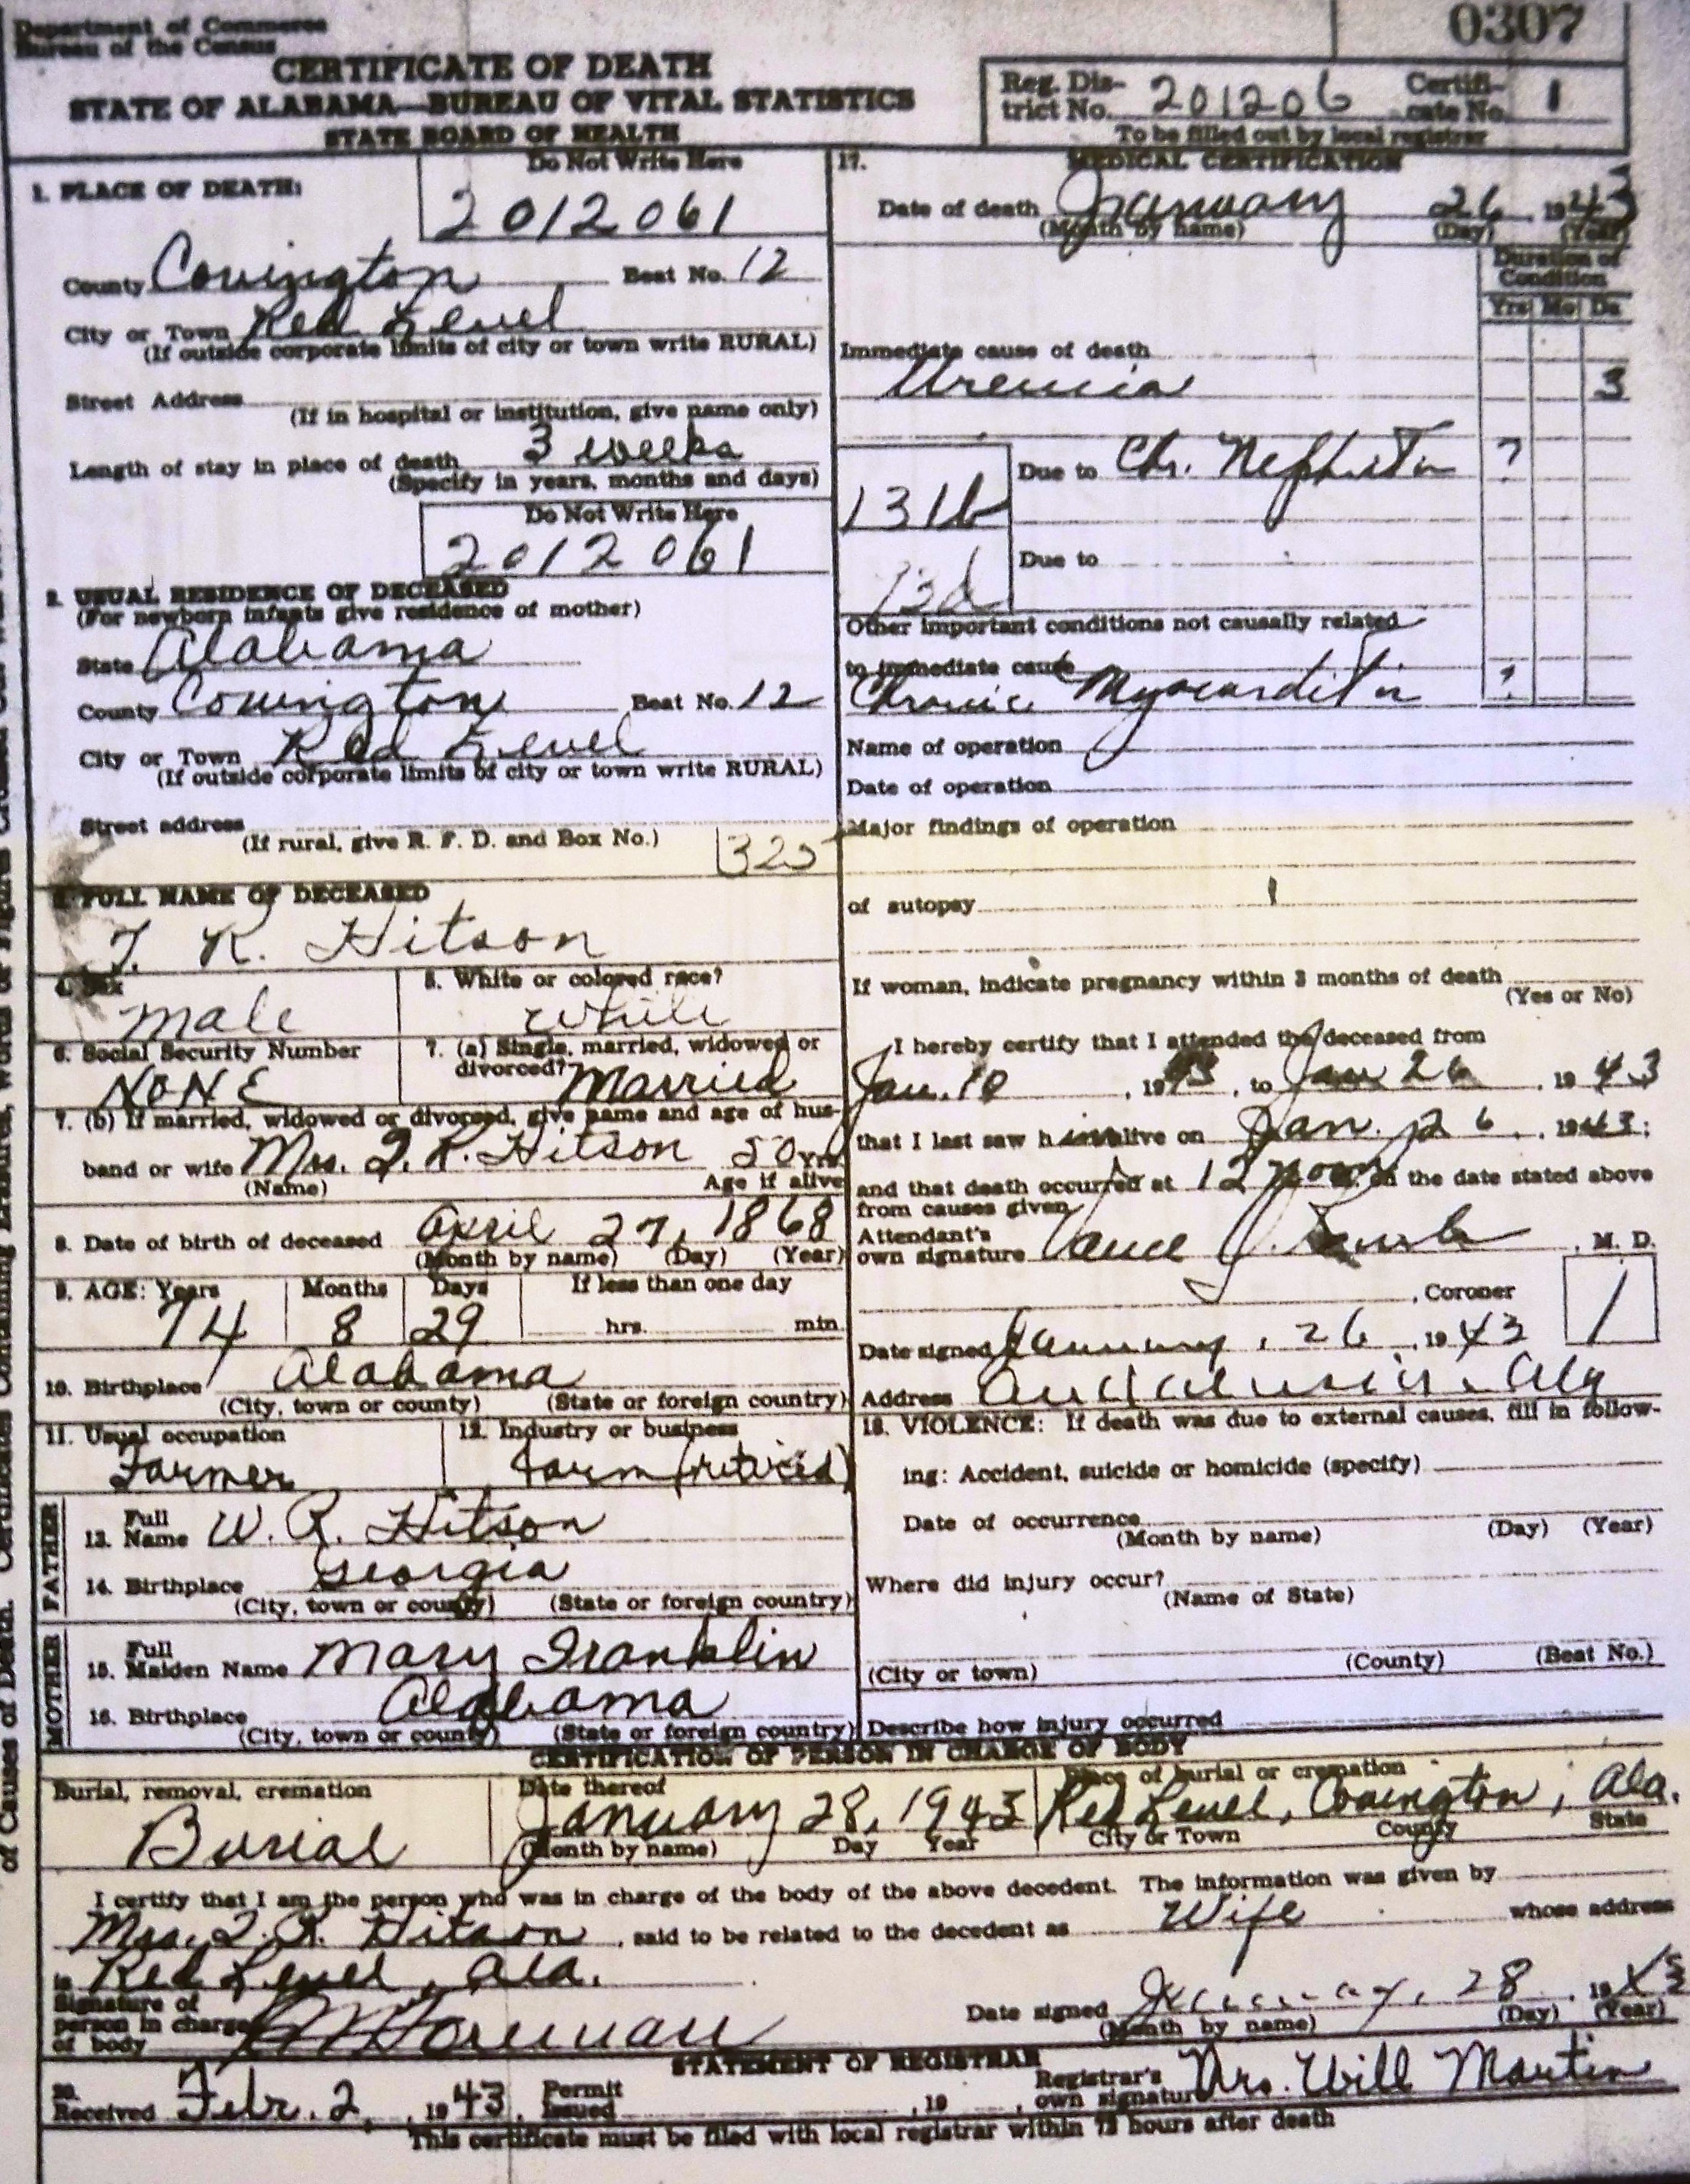 Department of Commerce
Bureau of the Census
0307
CERTIFICATE OF DEATH
STATE OF ALABAMA—BUREAU OF VITAL STATISTICS
STATE BOARD OF HEALTH
Reg. Dis- Certifi-
trict No. 201206 cate No. 1
To be filled out by local registrar
Do Not Write Here
1. PLACE OF DEATH:
2012061
County Covington Beat No. 12
City or Town Red Level
(If outside corporate limits of city or town write RURAL)
Street Address
(If in hospital or institution, give name only)
Length of stay in place of death 3 weeks
(Specify in years, months and days)
Do Not Write Here
2012061
2. USUAL RESIDENCE OF DECEASED
(For newborn infants give residence of mother)
State Alabama
County Covington Beat No. 12
City or Town Red Level
(If outside corporate limits of city or town write RURAL)
Street address
(If rural, give R. F. D. and Box No.) 325
3. FULL NAME OF DECEASED
T. R. Hitson
4. Sex 5. White or colored race?
Male White
6. Social Security Number 7. (a) Single, married, widowed or
divorced? Married
NONE
7. (b) If married, widowed or divorced, give name and age of hus-
band or wife Mrs. T. R. Hitson 50 Yrs.
(Name) Age if alive
8. Date of birth of deceased April 27, 1868
(Month by name) (Day) (Year)
9. AGE: Years Months Days If less than one day
74 8 29 hrs. min.
10. Birthplace Alabama
(City, town or county) (State or foreign country)
11. Usual occupation 12. Industry or business
Farmer Farm (retired)
FATHER
Full
13. Name W. R. Hitson
14. Birthplace Georgia
(City, town or county) (State or foreign country)
MOTHER
Full
15. Maiden Name Mary Franklin
16. Birthplace Alabama
(City, town or county) (State or foreign country)
17. MEDICAL CERTIFICATION
Date of death January 26 1943
(Month by name) (Day) (Year)
Duration of
Condition
Yrs Mo Da
Immediate cause of death
Uremia 3
Due to Chr. Nephritis ?
131b
Due to
93d
Other important conditions not causally related
to immediate cause
Chronic Myocarditis ?
Name of operation
Date of operation
Major findings of operation
of autopsy
If woman, indicate pregnancy within 3 months of death
(Yes or No)
I hereby certify that I attended the deceased from
Jan. 10, 1943, to Jan 26, 1943
that I last saw him alive on Jan. 26, 1943;
and that death occurred at 12 noon on the date stated above
from causes given
Attendant's
own signature M. D.
, Coroner 1
Date signed January, 26, 1943
Address Andalusia, Ala
18. VIOLENCE: If death was due to external causes, fill in follow-
ing: Accident, suicide or homicide (specify)
Date of occurrence
(Month by name) (Day) (Year)
Where did injury occur?
(Name of State)
(City or town) (County) (Beat No.)
Describe how injury occurred
CERTIFICATION OF PERSON IN CHARGE OF BODY
Burial, removal, cremation Date thereof Place of burial or cremation
Burial January 28, 1943 Red Level, Covington, Ala.
(Month by name) Day Year City or Town County State
I certify that I am the person who was in charge of the body of the above decedent. The information was given by
Mrs. T. R. Hitson, said to be related to the decedent as Wife whose address
is Red Level, Ala.
Signature of
person in charge
of body Foreman
Date signed January, 28, 1943
(Month by name) (Day) (Year)
STATEMENT OF REGISTRAR
20.
Received Febr. 2, 1943. Permit
Issued , 19 , Registrar's
own signature Mrs. Will Martin
This certificate must be filed with local registrar within 72 hours after death
of Causes of Death. Certificates Containing Erasures, Words or Figures Crossed Out